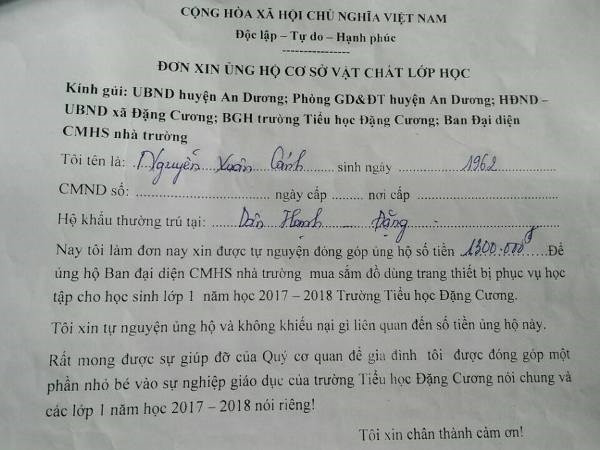 CỘNG HÒA XÃ HỘI CHỦ NGHĨA VIỆT NAM
Độc lập – Tự do – Hạnh phúc
----------------
ĐƠN XIN ỦNG HỘ CƠ SỞ VẬT CHẤT LỚP HỌC
Kính gửi: UBND huyện An Dương; Phòng GD&ĐT huyện An Dương; HĐND –
UBND xã Đặng Cương; BGH trường Tiểu học Đặng Cương; Ban Đại diện
CMHS nhà trường
Tôi tên là: Nguyễn Xuân Cảnh sinh ngày 1962
CMND số: ............ ngày cấp .......... nơi cấp ..........
Hộ khẩu thường trú tại: Đặng
Nay tôi làm đơn nay xin được tự nguyện đóng góp ủng hộ số tiền 1300.000đ Để
ủng hộ Ban đại diện CMHS nhà trường mua sắm đồ dùng trang thiết bị phục vụ học
tập cho học sinh lớp 1 năm học 2017 – 2018 Trường Tiểu học Đặng Cương.
Tôi xin tự nguyện ủng hộ và không khiếu nại gì liên quan đến số tiền ủng hộ này.
Rất mong được sự giúp đỡ của Quý cơ quan để gia đình tôi được đóng góp một
phần nhỏ bé vào sự nghiệp giáo dục của trường Tiểu học Đặng Cương nói chung và
các lớp 1 năm học 2017 – 2018 nói riêng!
Tôi xin chân thành cảm ơn!